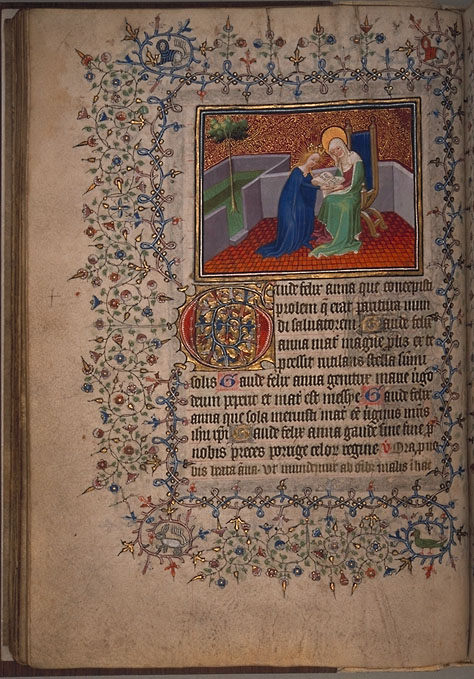 Gaude felix anna que concepisti
prolem q̄ erat paritura mun
di saluatorem Gaude felix
anna mat̄ magne plis et te
posset rutilans stella sumi
solis Gaude felix anna genitrix marie v̄go
deum peperit et mat̄ est messye Gaude felix
anna que sola meruisti mat̄ et v̄ginis
ihu xp̄i Gaude felix anna gaude sine fine p̄
nobis preces porrige celor regine V Ora p̄ no
bis beata āna. Vt mundemur ab oībꝫ malis i hac